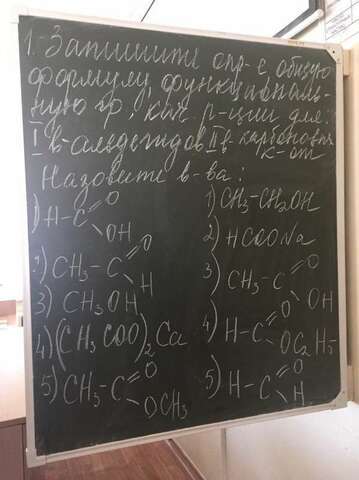 1. Запишите опр-е, общую
формулу, функциональ-
ную гр., кач. р-ции для:
I в-альдегидов II в- карбоновых
к-от
Назовите в-ва:
1) H-C=O OH
2) CH3-C=O H
3) CH3OH
4) (CH3COO)2Ca
5) CH3-C=O OCH3
1) CH3-CH2OH
2) HCOONa
3) CH3-C=O OH
4) H-C=O OC2H5
5) H-C=O H